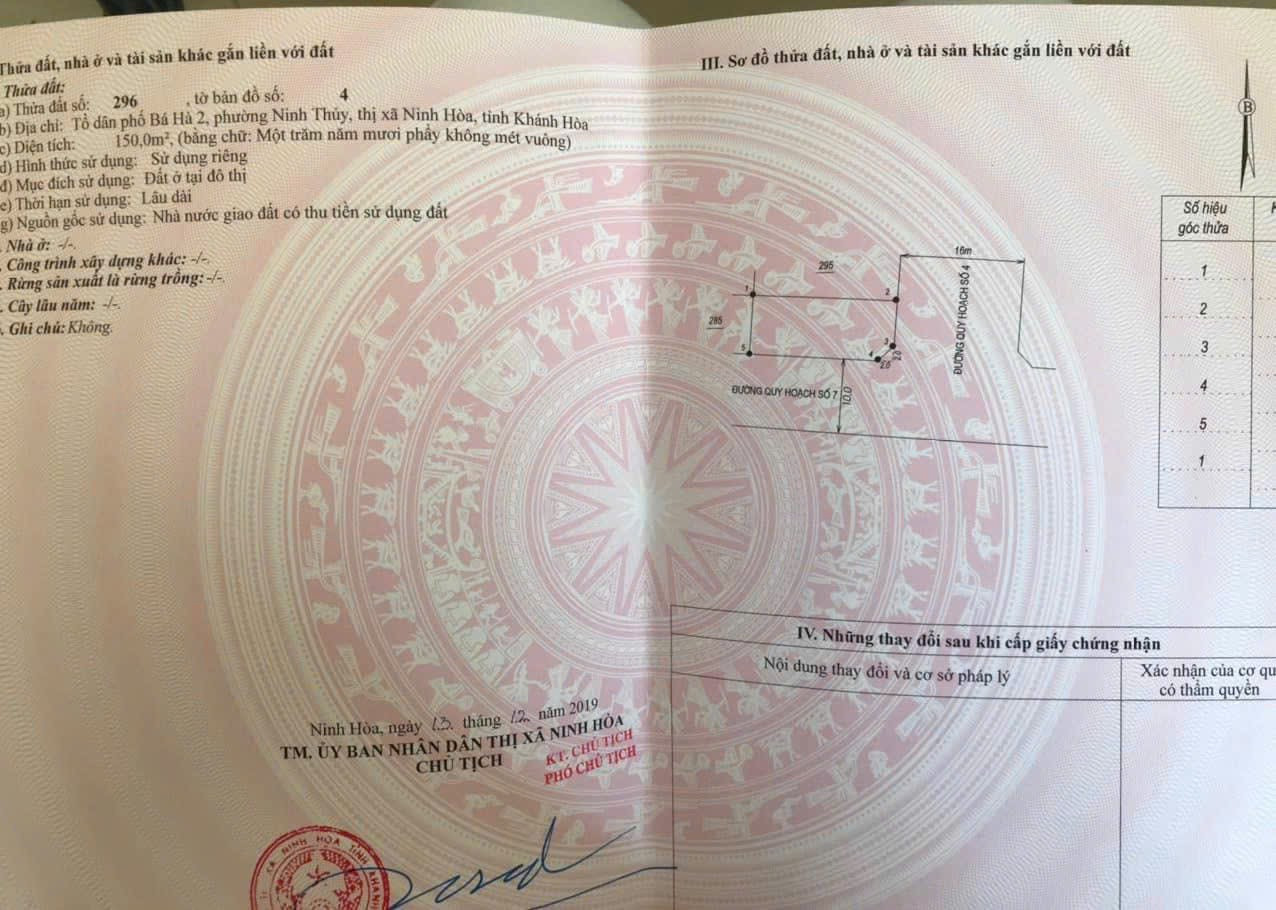 Thửa đất, nhà ở và tài sản khác gắn liền với đất
Thửa đất:
a) Thửa đất số: 296 , tờ bản đồ số: 4
b) Địa chỉ: Tổ dân phố Bá Hà 2, phường Ninh Thủy, thị xã Ninh Hòa, tỉnh Khánh Hòa
c) Diện tích: 150,0m², (bằng chữ: Một trăm năm mươi phẩy không mét vuông)
d) Hình thức sử dụng: Sử dụng riêng
đ) Mục đích sử dụng: Đất ở tại đô thị
e) Thời hạn sử dụng: Lâu dài
g) Nguồn gốc sử dụng: Nhà nước giao đất có thu tiền sử dụng đất
. Nhà ở: -/-.
. Công trình xây dựng khác: -/-.
. Rừng sản xuất là rừng trồng: -/-.
. Cây lâu năm: -/-.
. Ghi chú: Không.
Ninh Hòa, ngày 13 tháng 12 năm 2019
TM. ỦY BAN NHÂN DÂN THỊ XÃ NINH HÒA
CHỦ TỊCH
KT. CHỦ TỊCH
PHÓ CHỦ TỊCH
NINH HÒA TỈNH KHÁNH
III. Sơ đồ thửa đất, nhà ở và tài sản khác gắn liền với đất
B
Số hiệu
góc thửa
1
2
3
4
5
1
16m
295
1
2
285
3
5
4
2.0
2.0
ĐƯỜNG QUY HOẠCH SỐ 4
ĐƯỜNG QUY HOẠCH SỐ 7
10.0
IV. Những thay đổi sau khi cấp giấy chứng nhận
Nội dung thay đổi và cơ sở pháp lý
Xác nhận của cơ qu
có thẩm quyền